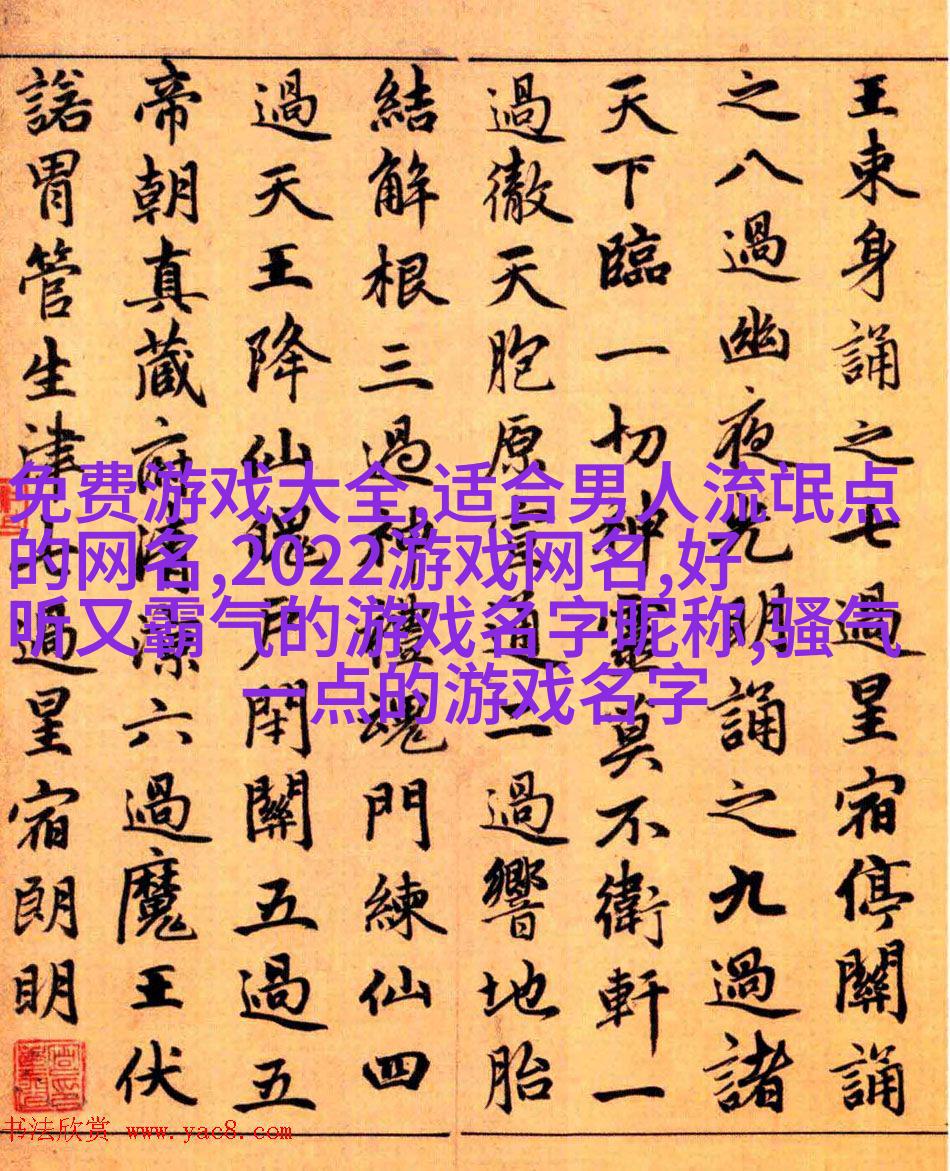 王束身誦之七過星宿停關誦
之八過幽夜光明誦之九過諸
天下臨一切神靈莫不衛軒一
過徹天胞原宣通二過響地胎
結解根三過神禮魂門練仙四
過天王降仙戶開關五過五
帝朝真藏府清涼六過魔王伏
諾胃管生津七過星宿朗明
免费游戏大全,适合男人流氓点
的网名,2022游戏网名,好
听又霸气的游戏名字昵称,骚气
一点的游戏名字
书法欣赏 www.yac8.com